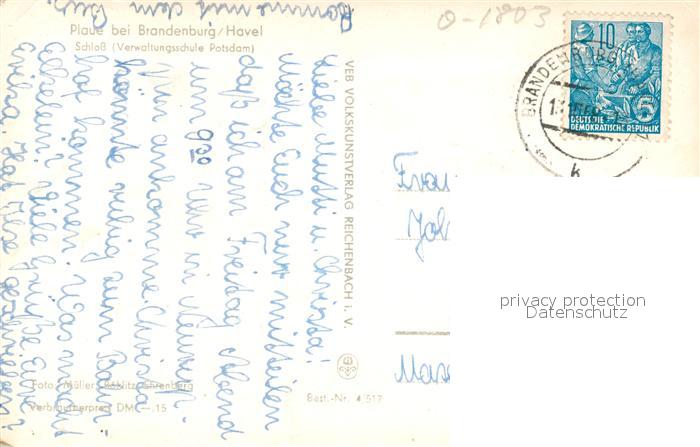 Plaue bei Brandenburg/Havel
Schloß (Verwaltungsschule Potsdam)
Komme mit dem
Liebe Mutti u. Christa!
Möchte Euch nur mitteilen
daß ich am Freitag Abend
um 9 30 Uhr in
ankomme. Christa
könnte ruhig zum Bahn-
hof kommen. Was macht
Viele Grüße Eure
Erika. Hat
VEB VOLKSKUNSTVERLAG REICHENBACH i. V.
Foto: Müller, Ehrenberg
Verbraucherpreis DM —.15
Best.-Nr. 4 517
0-1803
10
DEUTSCHE
DEMOKRATISCHE REPUBLIK
BRANDENBURG
k
Frau
privacy protection
Datenschutz